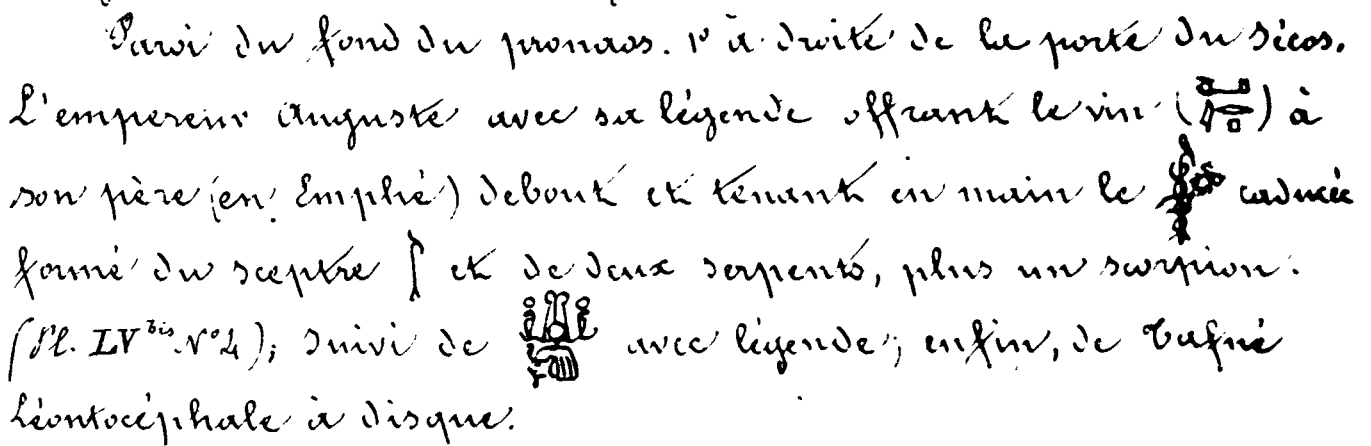 Paroi du fond du pronaos. 1º à droite de la porte du Sécos.
L'empereur Auguste avec sa légende offrant le vin () à
son père (en Emphé) debout et tenant en main le caducée
formé du sceptre et de deux serpents, plus un scorpion.
(Pl. LV bis. Nº 4); suivi de avec légende; enfin, de Tafné
Léontocéphale à disque.